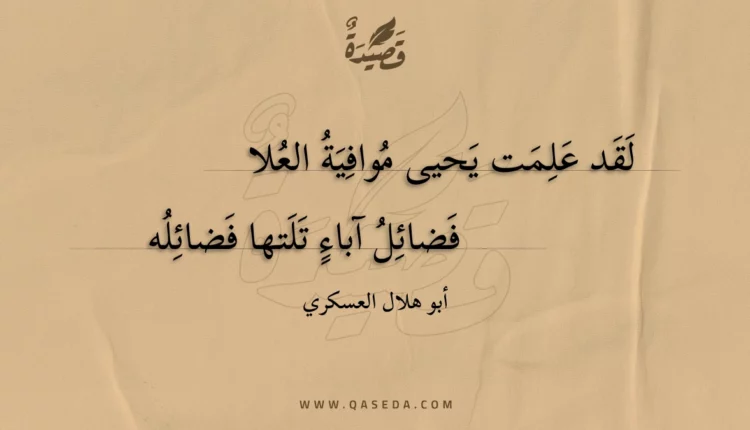 قَصِيدَةٌ
لَقَد عَلِمَت يَحيى مُوافِيَةُ العُلا
فَضائِلُ آباءٍ تَلَتها فَضائِلُه
أبو هلال العسكري
WWW.QASEDA.COM